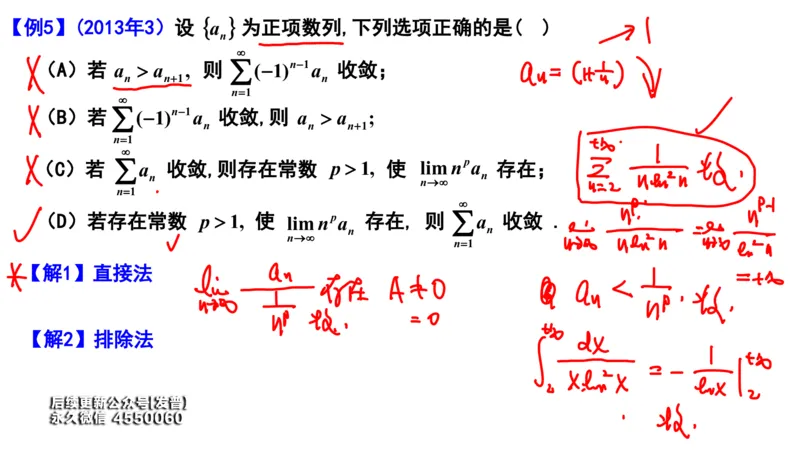 【例5】(2013年3) 设 {a_n} 为正项数列,下列选项正确的是( )
(A) 若 a_n > a_{n+1}, 则 ∑_{n=1}^{∞} (-1)^{n-1} a_n 收敛;
(B) 若 ∑_{n=1}^{∞} (-1)^{n-1} a_n 收敛,则 a_n > a_{n+1};
(C) 若 ∑_{n=1}^{∞} a_n 收敛,则存在常数 p > 1, 使 lim_{n→∞} n^p a_n 存在;
(D) 若存在常数 p > 1, 使 lim_{n→∞} n^p a_n 存在, 则 ∑_{n=1}^{∞} a_n 收敛 .
【解1】直接法
【解2】排除法
→ 1
a_n = (1+1/n)
∑_{n=2}^{+∞} 1/(n ln² n) 收敛.
lim_{n→∞} n^p/(n ln² n) = lim_{n→∞} n^{p-1}/(ln² n)
= +∞
lim_{n→∞} a_n/(1/n^p) 存在 A ≠ 0
收敛. = 0
a_n < 1/n^p. 收敛.
∫_2^{+∞} dx/(x ln² x) = - 1/(ln x) |_2^{+∞}
收敛.
后续更新公众号[发普]
永久微信 4550060